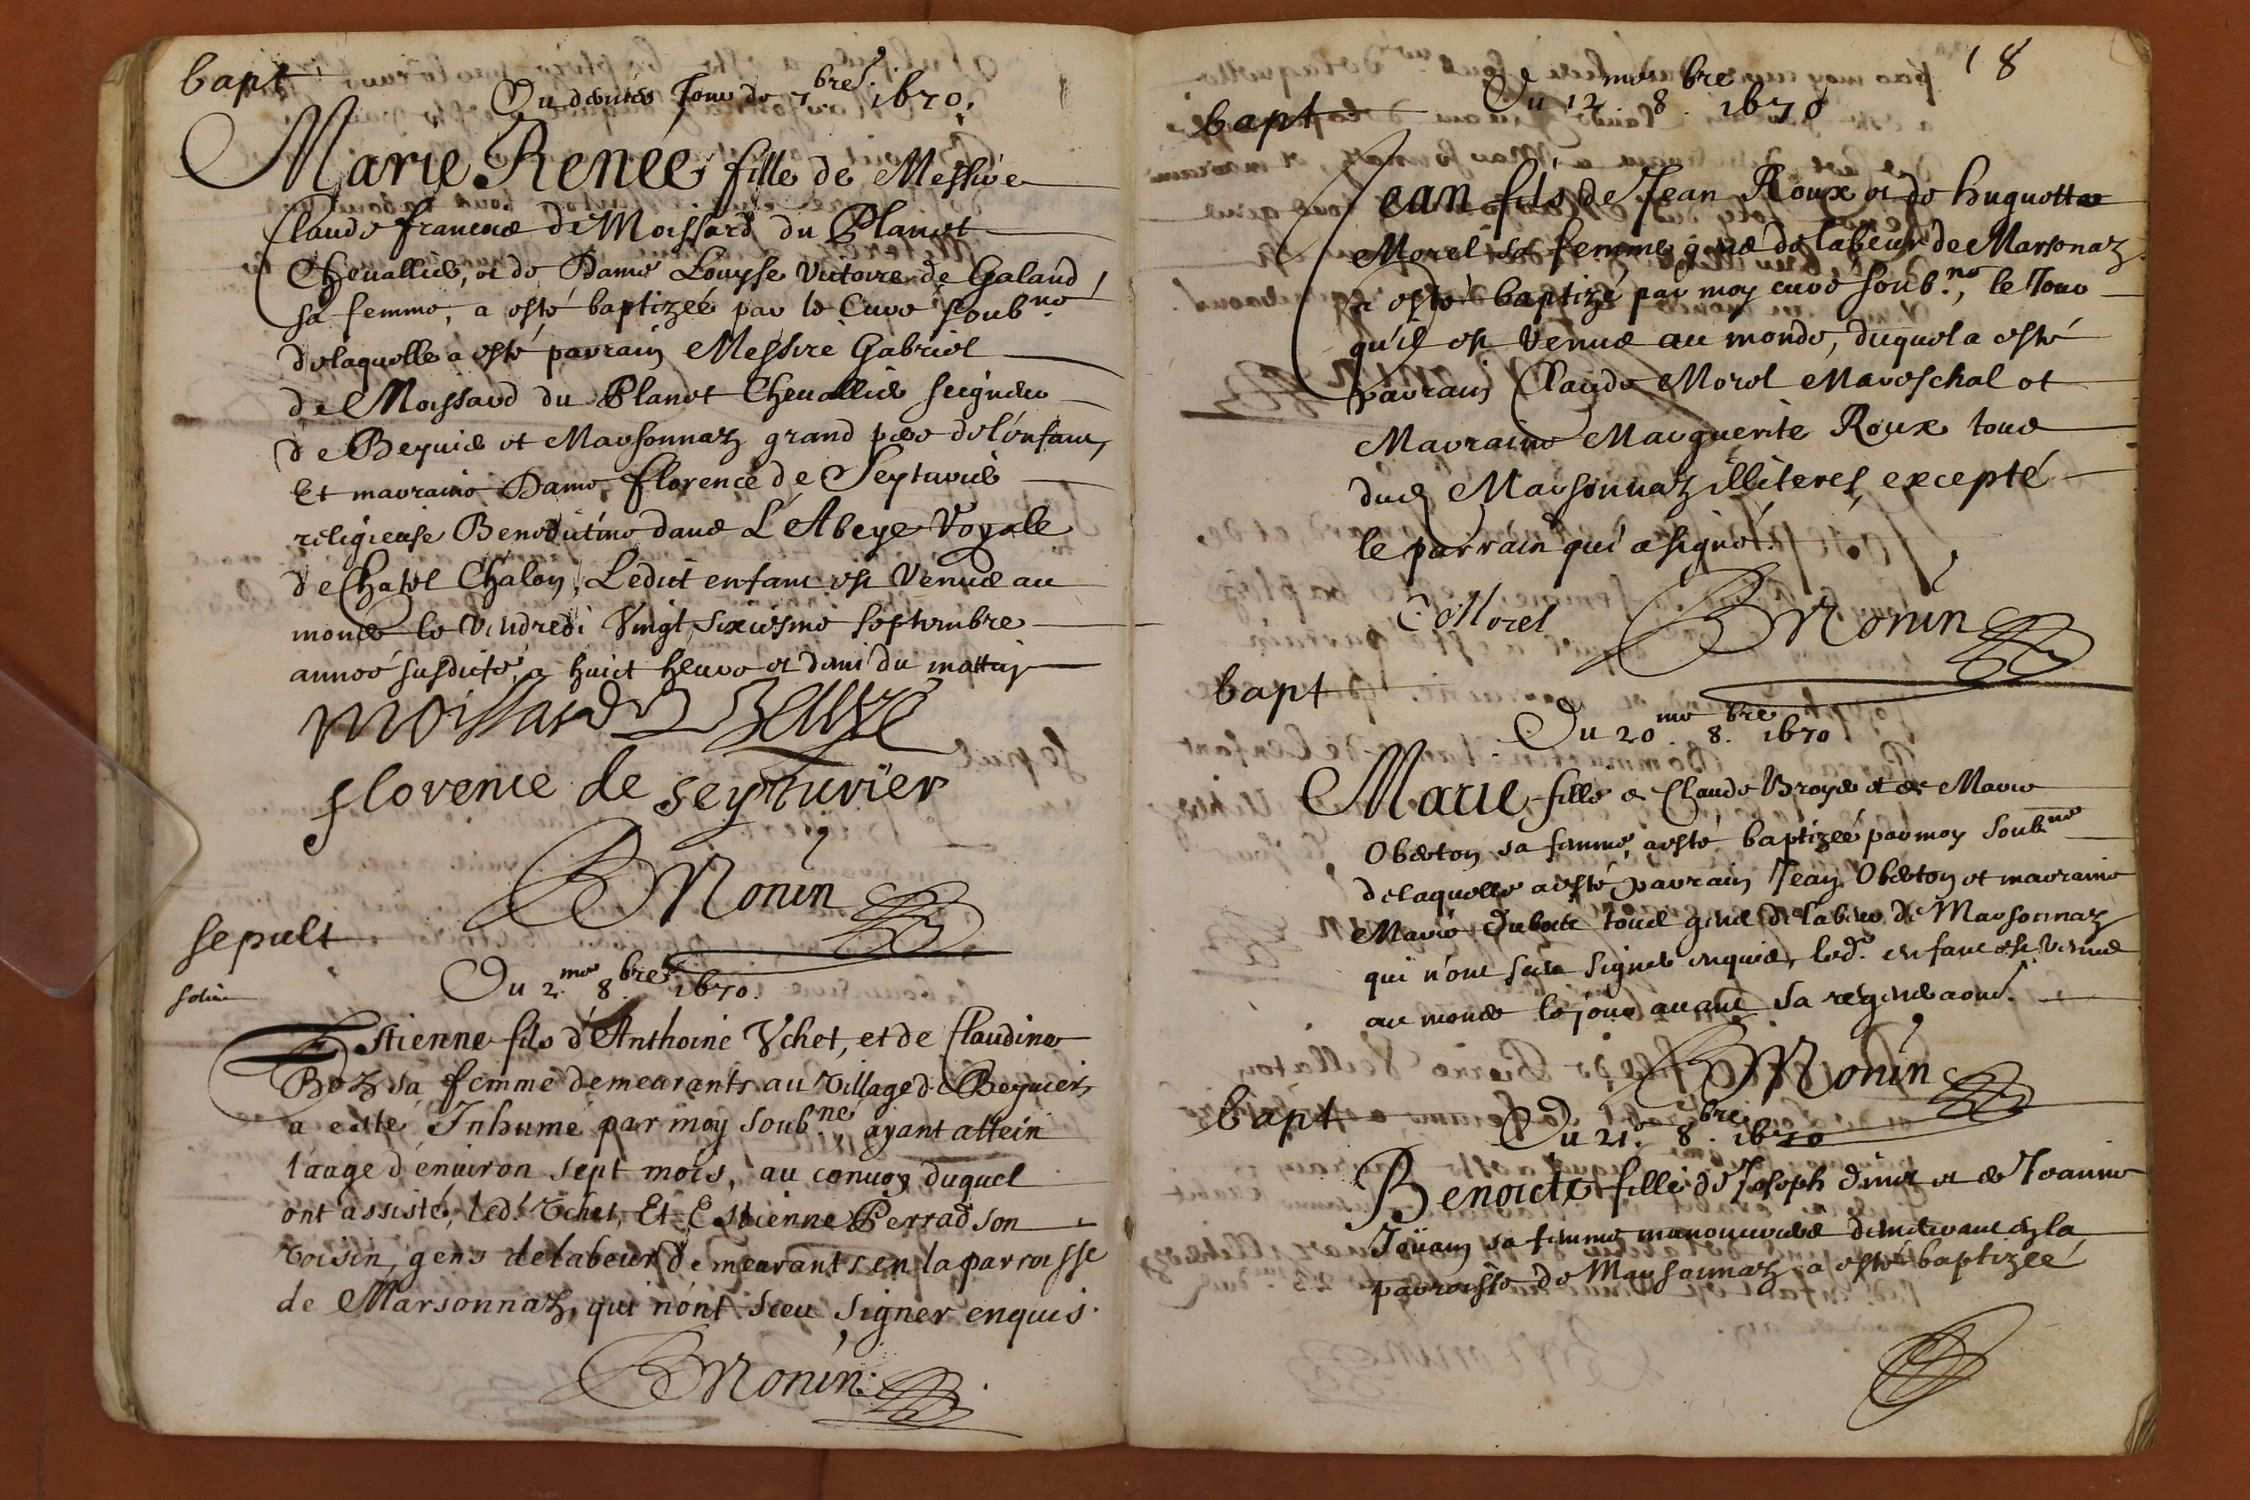 bapt
Du dernier Jour de 7bres. 1670.
Marie Renée, fille de Messire
Claude francois de Moissard du Planet
Cheuallier, et de Dame Louyse Victoire de Galand
sa femme, a esté baptizeé par le Curé soubné
delaquelle a esté parrain Messire Gabriel
de Moissard du Planet Cheuallier seigneur
de Beyuier et Marsonnaz grand pere de l'enfant,
Et marraine Dame florence de Seyturier
religieuse Benedictine dans L'Abeye Royale
de Chatel Chalon, Ledict enfant est Venue au
monde le Vendredi Vingt sixiesme septembre
anneé susdicte, a huict heure et demi du mattin
florence de seyturier
B Monin
sepult
Du 2.me 8.bres 1670.
Estienne fils d'Anthoine Vchet, et de Claudine
Boz sa femme demeurants au village de Beyuier,
a esté Inhumé par moy soubné ayant attein
l'aage d'enuiron sept mois, au conuoy duquel
ont assisté, led. Vchet, Et Estienne Perrad son
voisin, gens de labeur demeurants en la parroisse
de Marsonnaz, qui n'ont sceu signer enquis.
B Monin.
18
bapt
Du 12.me 8.bre 1670
Jean fils de Jean Roux et de huguette
Morel sa femme gens de labeur de Marsonaz
a esté baptizé par moy curé soub.né, le Jour
qu'il est Venue au monde, duquel a esté
parrain Claude Morel Mareschal et
Marraine Marguerite Roux tous
dud. Marsonnaz illiteres, excepté
le parrain qui a signé.
C Morel B Monin
bapt
Du 20.me 8.bre 1670
Marie fille de Claude Broyer et de Marie
Oberton sa femme, a esté baptizeé par moy soubné
delaquelle a esté parrain Jean Oberton et marraine
Marie tous gens de labeur de Marsonnaz
qui n'ont sceu signer enquis, led. enfant est Venue
au monde le jour auant sa regeneraon.
B Monin
bapt
Du 21.e 8.bre 1670
Benoicte fille de Joseph et de Joanne
sa femme manouuriers demeurant en la
parroisse de Marsonnaz a esté baptizeé